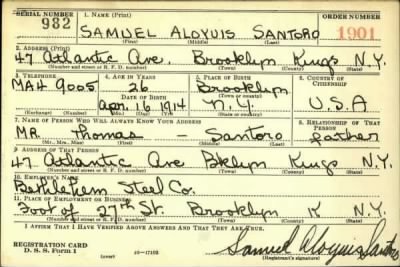 SERIAL NUMBER 1. NAME (Print) ORDER NUMBER
982 SAMUEL ALOYUIS SANTORO 1901
(First) (Middle) (Last)
2. ADDRESS (Print)
47 Atlantic Ave. Brooklyn Kings N.Y.
(Number and street or R. F. D. number) (Town) (County) (State)
3. TELEPHONE 4. AGE IN YEARS 5. PLACE OF BIRTH 6. COUNTRY OF CITIZENSHIP
MA4 9005 26 Brooklyn
DATE OF BIRTH (Town or county)
Apr. 16 1914 N.Y. U.S.A
(Exchange) (Number) (Mo.) (Day) (Yr.) (State or country)
7. NAME OF PERSON WHO WILL ALWAYS KNOW YOUR ADDRESS 8. RELATIONSHIP OF THAT PERSON
MR. Thomas — Santoro father
(Mr., Mrs., Miss) (First) (Middle) (Last)
9. ADDRESS OF THAT PERSON
47 Atlantic Ave Bklyn Kings N.Y.
(Number and street or R. F. D. number) (Town) (County) (State)
10. EMPLOYER'S NAME
Bethlehem Steel Co.
11. PLACE OF EMPLOYMENT OR BUSINESS
Foot of 27th St. Brooklyn K N.Y.
(Number and street or R. F. D. number) (Town) (County) (State)
I AFFIRM THAT I HAVE VERIFIED ABOVE ANSWERS AND THAT THEY ARE TRUE.
REGISTRATION CARD
D. S. S. Form 1 16—17105 Samuel Aloyuis Santoro
(Registrant's signature)